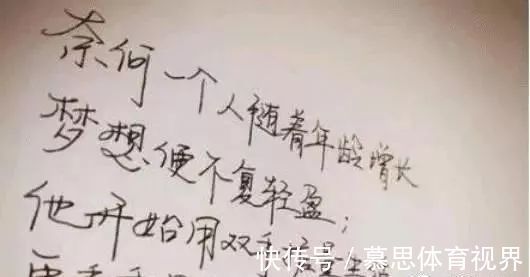 奈何一个人随着年龄增长
梦想便不复轻盈；
他开始用双手
快传号 / 慕思体育视界